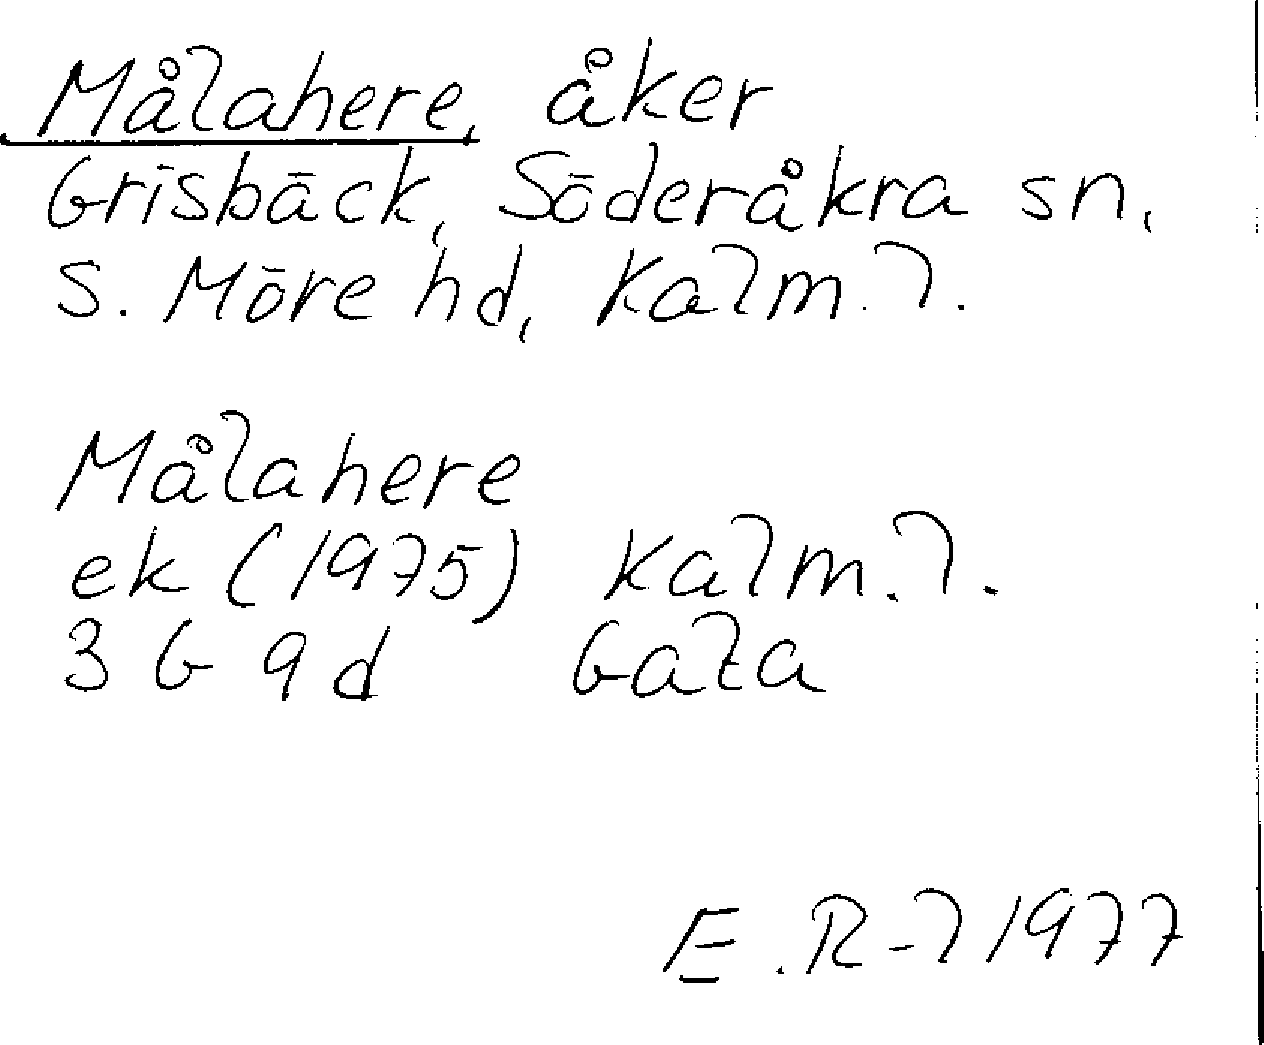 Målahere, åker
Grisbäck, Söderåkra sn,
S. Möre hd, Kalm. l.
Målahere
ek (1975) Kalm. l.
3 G 9 d Gata
E. R-l 1977